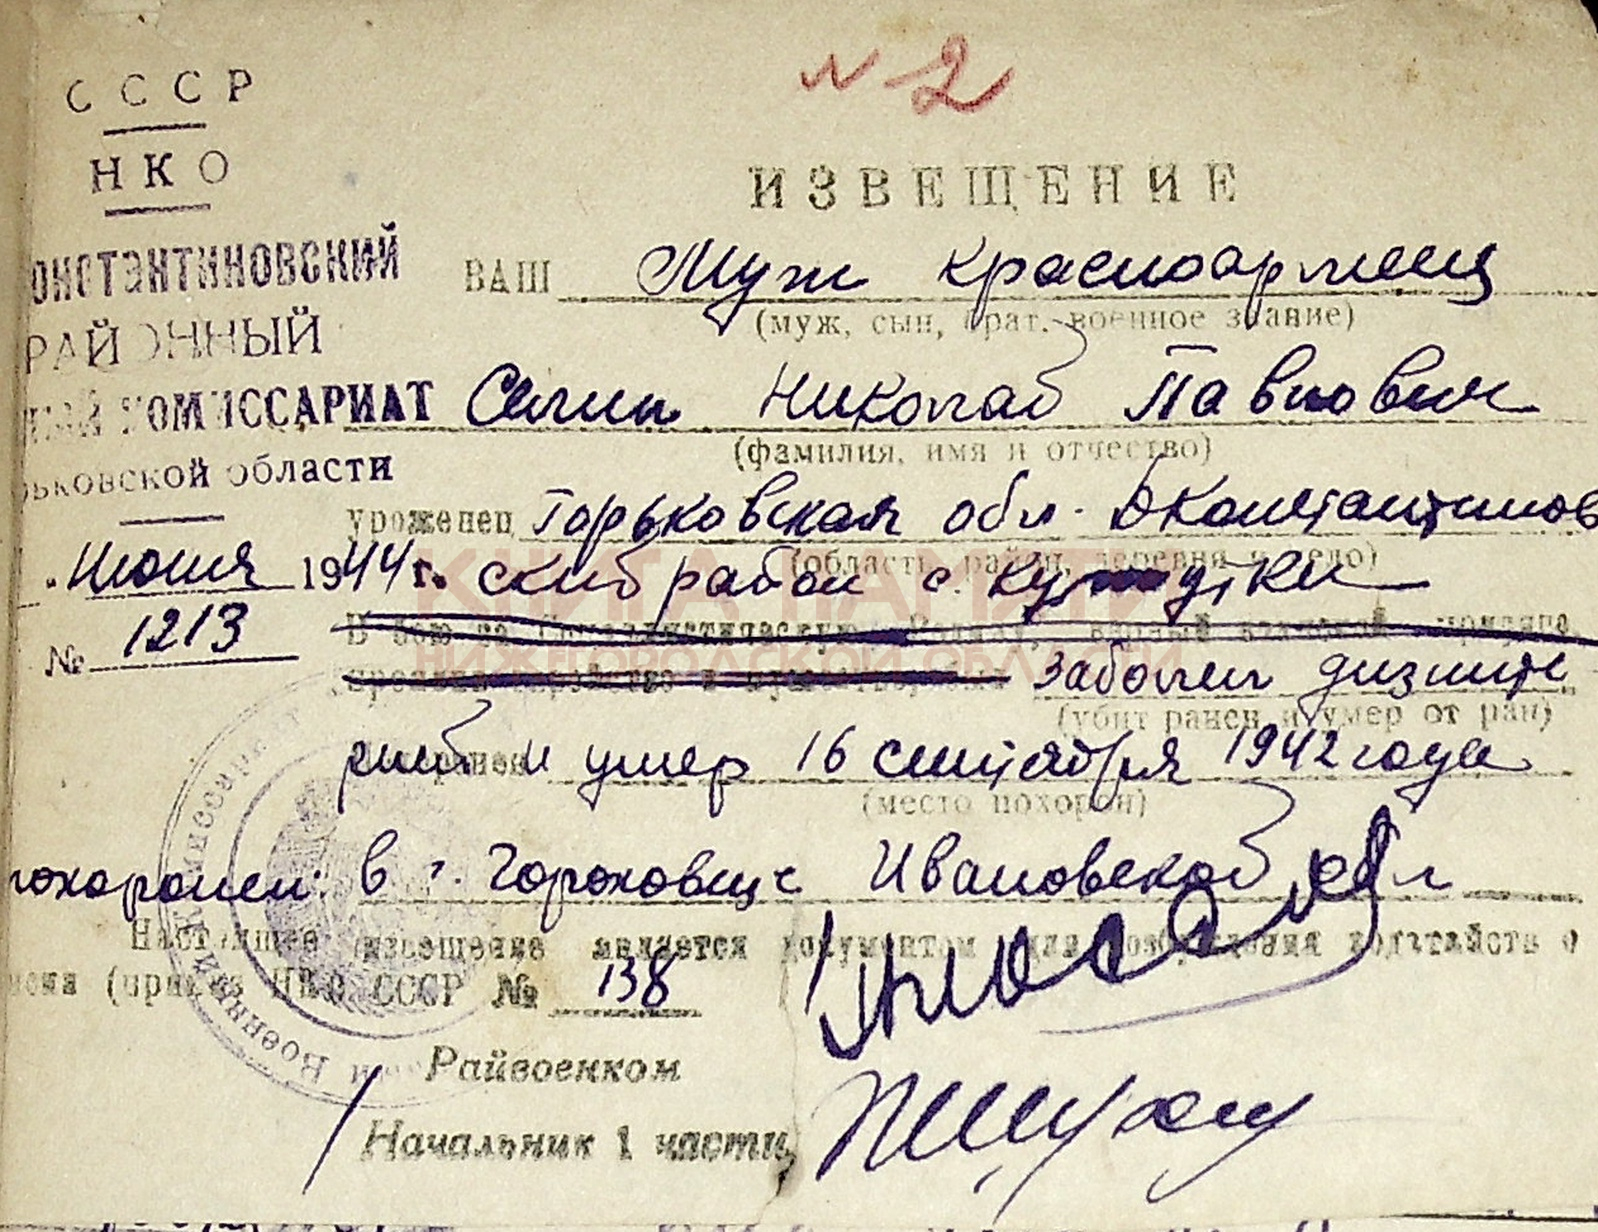 № 2
СССР
НКО
ОНСТАНТИНОВСКИЙ
РАЙОННЫЙ
КОМИССАРИАТ
ьковской области
Июня 1944 г.
№ 1213
ИЗВЕЩЕНИЕ
ВАШ Муж красноармеец
(муж, сын, брат, военное звание)
Селин Николай Павлович
(фамилия, имя и отчество)
уроженец Горьковская обл. Дконстантинов
(область, район, деревня и село)
ский район с.
КНИГА ПАМЯТИ
НИЖЕГОРОДСКОЙ ОБЛАСТИ
В бою за Социалистическую Родину, верный воинской присяге
заболел дизенте
(убит, ранен и умер от ран)
рией и умер 16 сентября 1942 года
(место похорон)
похоронен: в г. Гороховце Ивановской обл
Настоящее извещение является документом для возбуждения ходатайств о
(приказ НКО СССР № 138
Райвоенком
Начальник 1 части